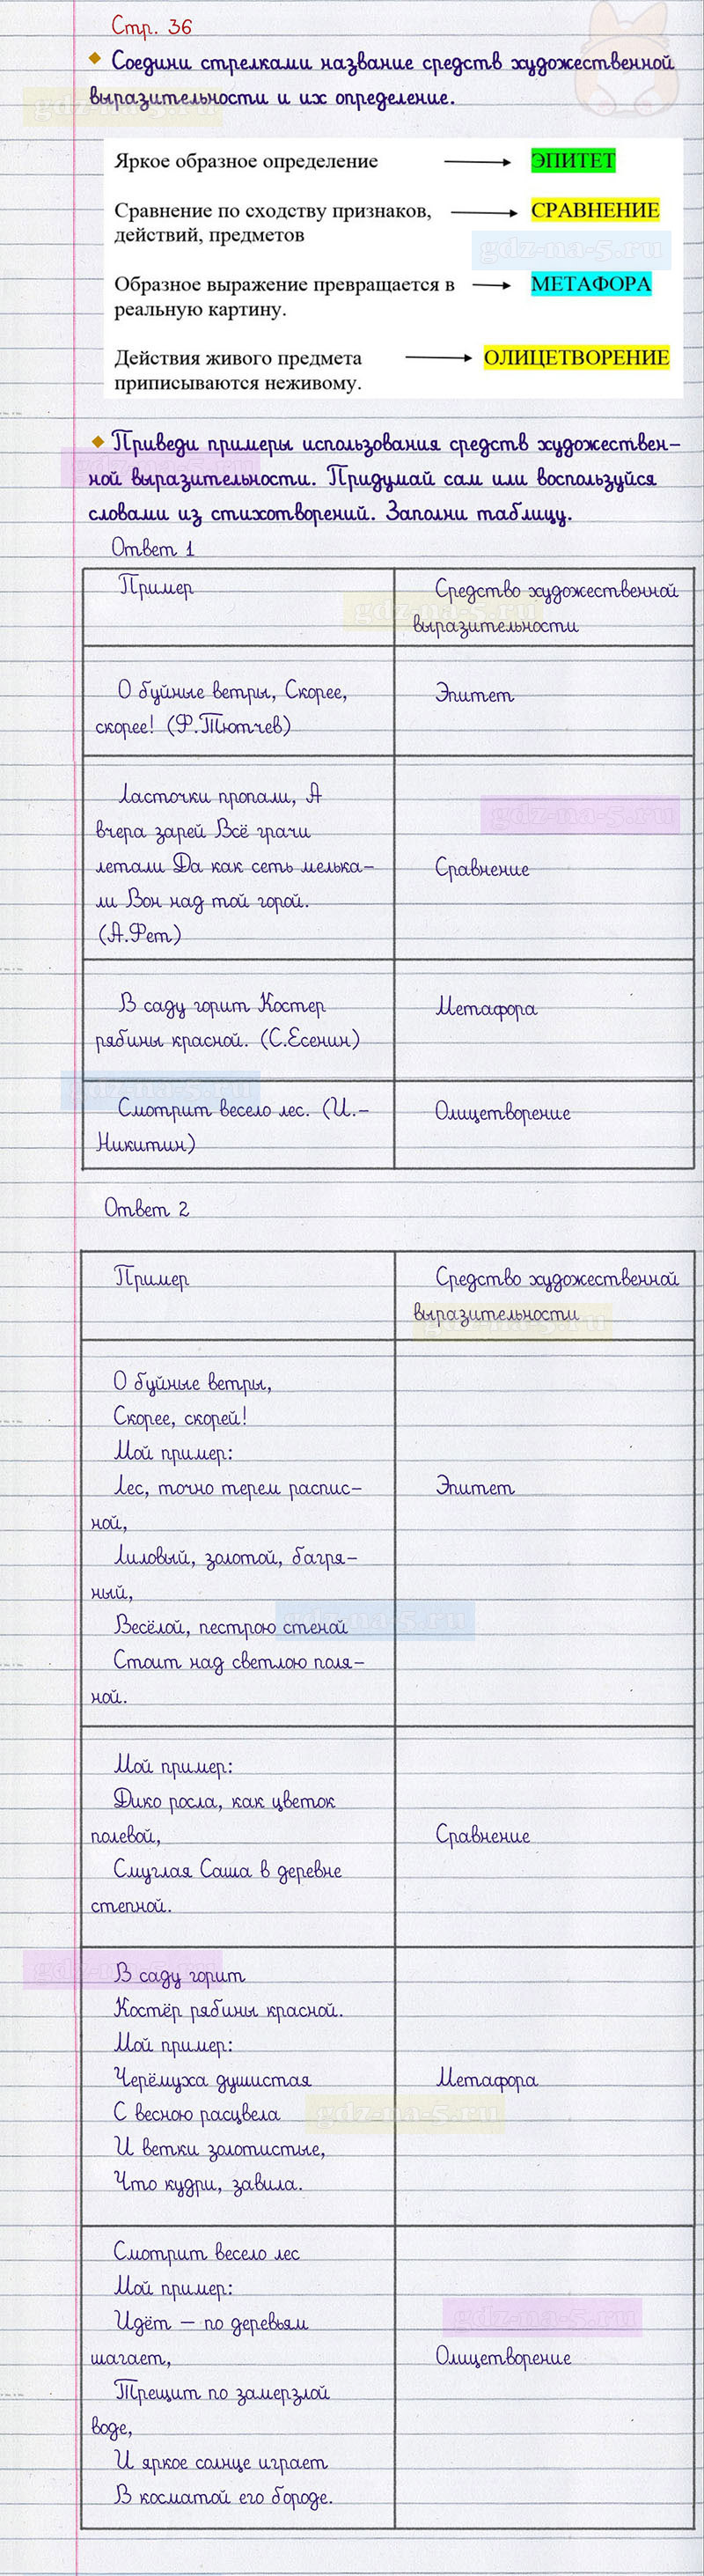 Стр. 36
Соедини стрелками название средств художественной
выразительности и их определение.
Яркое образное определение ЭПИТЕТ
Сравнение по сходству признаков, СРАВНЕНИЕ
действий, предметов
gdz-na-5.ru
Образное выражение превращается в МЕТАФОРА
реальную картину.
Действия живого предмета ОЛИЦЕТВОРЕНИЕ
приписываются неживому.
Приведи примеры использования средств художествен-
ной выразительности. Придумай сам или воспользуйся
словами из стихотворений. Заполни таблицу.
Ответ 1
Пример
Средство художественной
выразительности
О буйные ветры, Скорее,
скорее! (Ф.Тютчев)
Эпитет
Ласточки пропали, А
вчера зарей Всё грачи
летали Да как сеть мелька-
ли Вон над той горой.
(А.Фет)
Сравнение
В саду горит Костер
рябины красной. (С.Есенин)
Метафора
Смотрит весело лес. (И.-
Никитин)
Олицетворение
Ответ 2
Пример
Средство художественной
выразительности
О буйные ветры,
Скорее, скорей!
Мой пример:
Лес, точно терем распис-
ной,
Лиловый, золотой, багря-
ный,
Весёлой, пестрою стеной
Стоит над светлою поля-
ной.
Эпитет
Мой пример:
Дико росла, как цветок
полевой,
Смуглая Саша в деревне
степной.
Сравнение
В саду горит
Костёр рябины красной.
Мой пример:
Черёмуха душистая
С весною расцвела
И ветки золотистые,
Что кудри, завила.
Метафора
Смотрит весело лес
Мой пример:
Идёт – по деревьям
шагает,
Трещит по замерзлой
воде,
И яркое солнце играет
В косматой его бороде.
Олицетворение